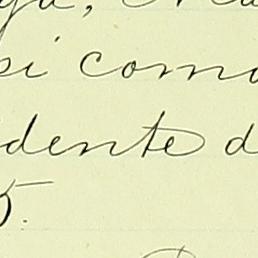 si como
dente d
5.